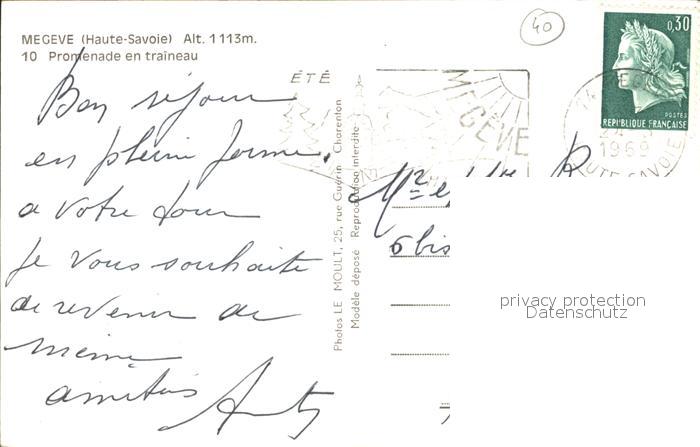 MEGEVE (Haute-Savoie) Alt. 1113m.
10 Promenade en traîneau
40
0,30
POSTES
REPUBLIQUE FRANÇAISE
ÉTÉ
MEGÈVE
1969
HAUTE-SAVOIE
Bon séjour
en pleine forme,
a votre tour
je vous souhaite
de revenir de
même
amitiés
Photos LE MOULT, 25, rue Guérin - Charenton
Modèle déposé Reproduction interdite
6 bis
privacy protection
Datenschutz